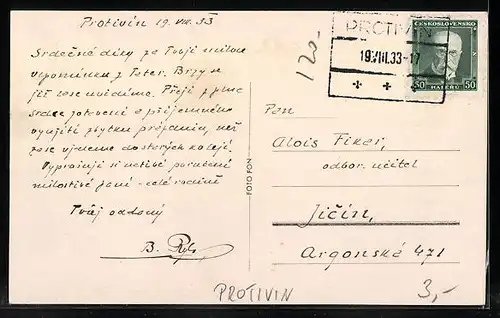 Protivín 19. VIII. 33
Srdečné díky za Tvoji milou
vzpomínku z Tater. Brzy se
již zase uvidíme. Přeji z plna
srdce zotavení a příjemného
využití zbytku prázdnin, než
zase vjedeme do starých kolejí.
Vyprošuji si uctivé poručení
milostivé paní - celé rodině
Tvůj oddaný
B.
120.-
PROTIVIN
19.VIII.33-17
ČESKOSLOVENSKO
50 HALÉŘŮ 50
FOTO FON
Pan
Alois Fiker,
odbor. učitel
Jičín,
Argonské 471
PROTIVIN
3,-